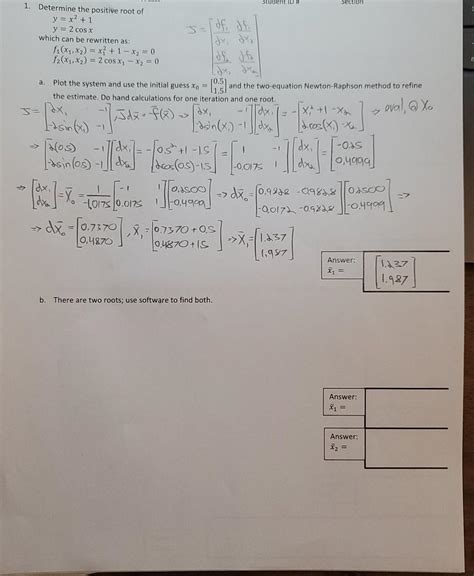 Student ID # Section
1. Determine the positive root of
y = x² + 1
y = 2 cos x
which can be rewritten as:
f₁(x₁, x₂) = x₁² + 1 − x₂ = 0
f₂(x₁, x₂) = 2 cos x₁ − x₂ = 0
J = [df₁/dx₁ df₁/dx₂; df₂/dx₁ df₂/dx₂]
a. Plot the system and use the initial guess x₀ = [0.5; 1.5] and the two-equation Newton-Raphson method to refine
the estimate. Do hand calculations for one iteration and one root.
J = [2x₁ -1; -2sin(x₁) -1], J dx̄ = -f̄(x̄) => [2x₁ -1; -2sin(x₁) -1][dx₁; dx₂] = -[x₁² +1 -x₂; 2cos(x₁) -x₂] => eval, @ X₀
=> [2(0.5) -1; -2sin(0.5) -1][dx₁; dx₂] = -[0.5² +1 -1.5; 2cos(0.5) -1.5] = [1 -1; -0.0175 1][dx₁; dx₂] = [-0.25; 0.4999]
=> [dx₁; dx₂] = X̄₀ = 1/-1.0175 [-1 1; 0.0175 1][0.2500; -0.4999] => dx̄₀ = [0.9828 -0.9828; -0.0172 -0.9828][0.2500; -0.4999] =>
=> dx̄₀ = [0.7370; 0.4870], x̄₁ = [0.7370 + 0.5; 0.4870 + 1.5] => x̄₁ = [1.237; 1.987]
Answer:
x̄₁ = [1.237; 1.987]
b. There are two roots; use software to find both.
Answer:
x̄₁ =
Answer:
x̄₂ =